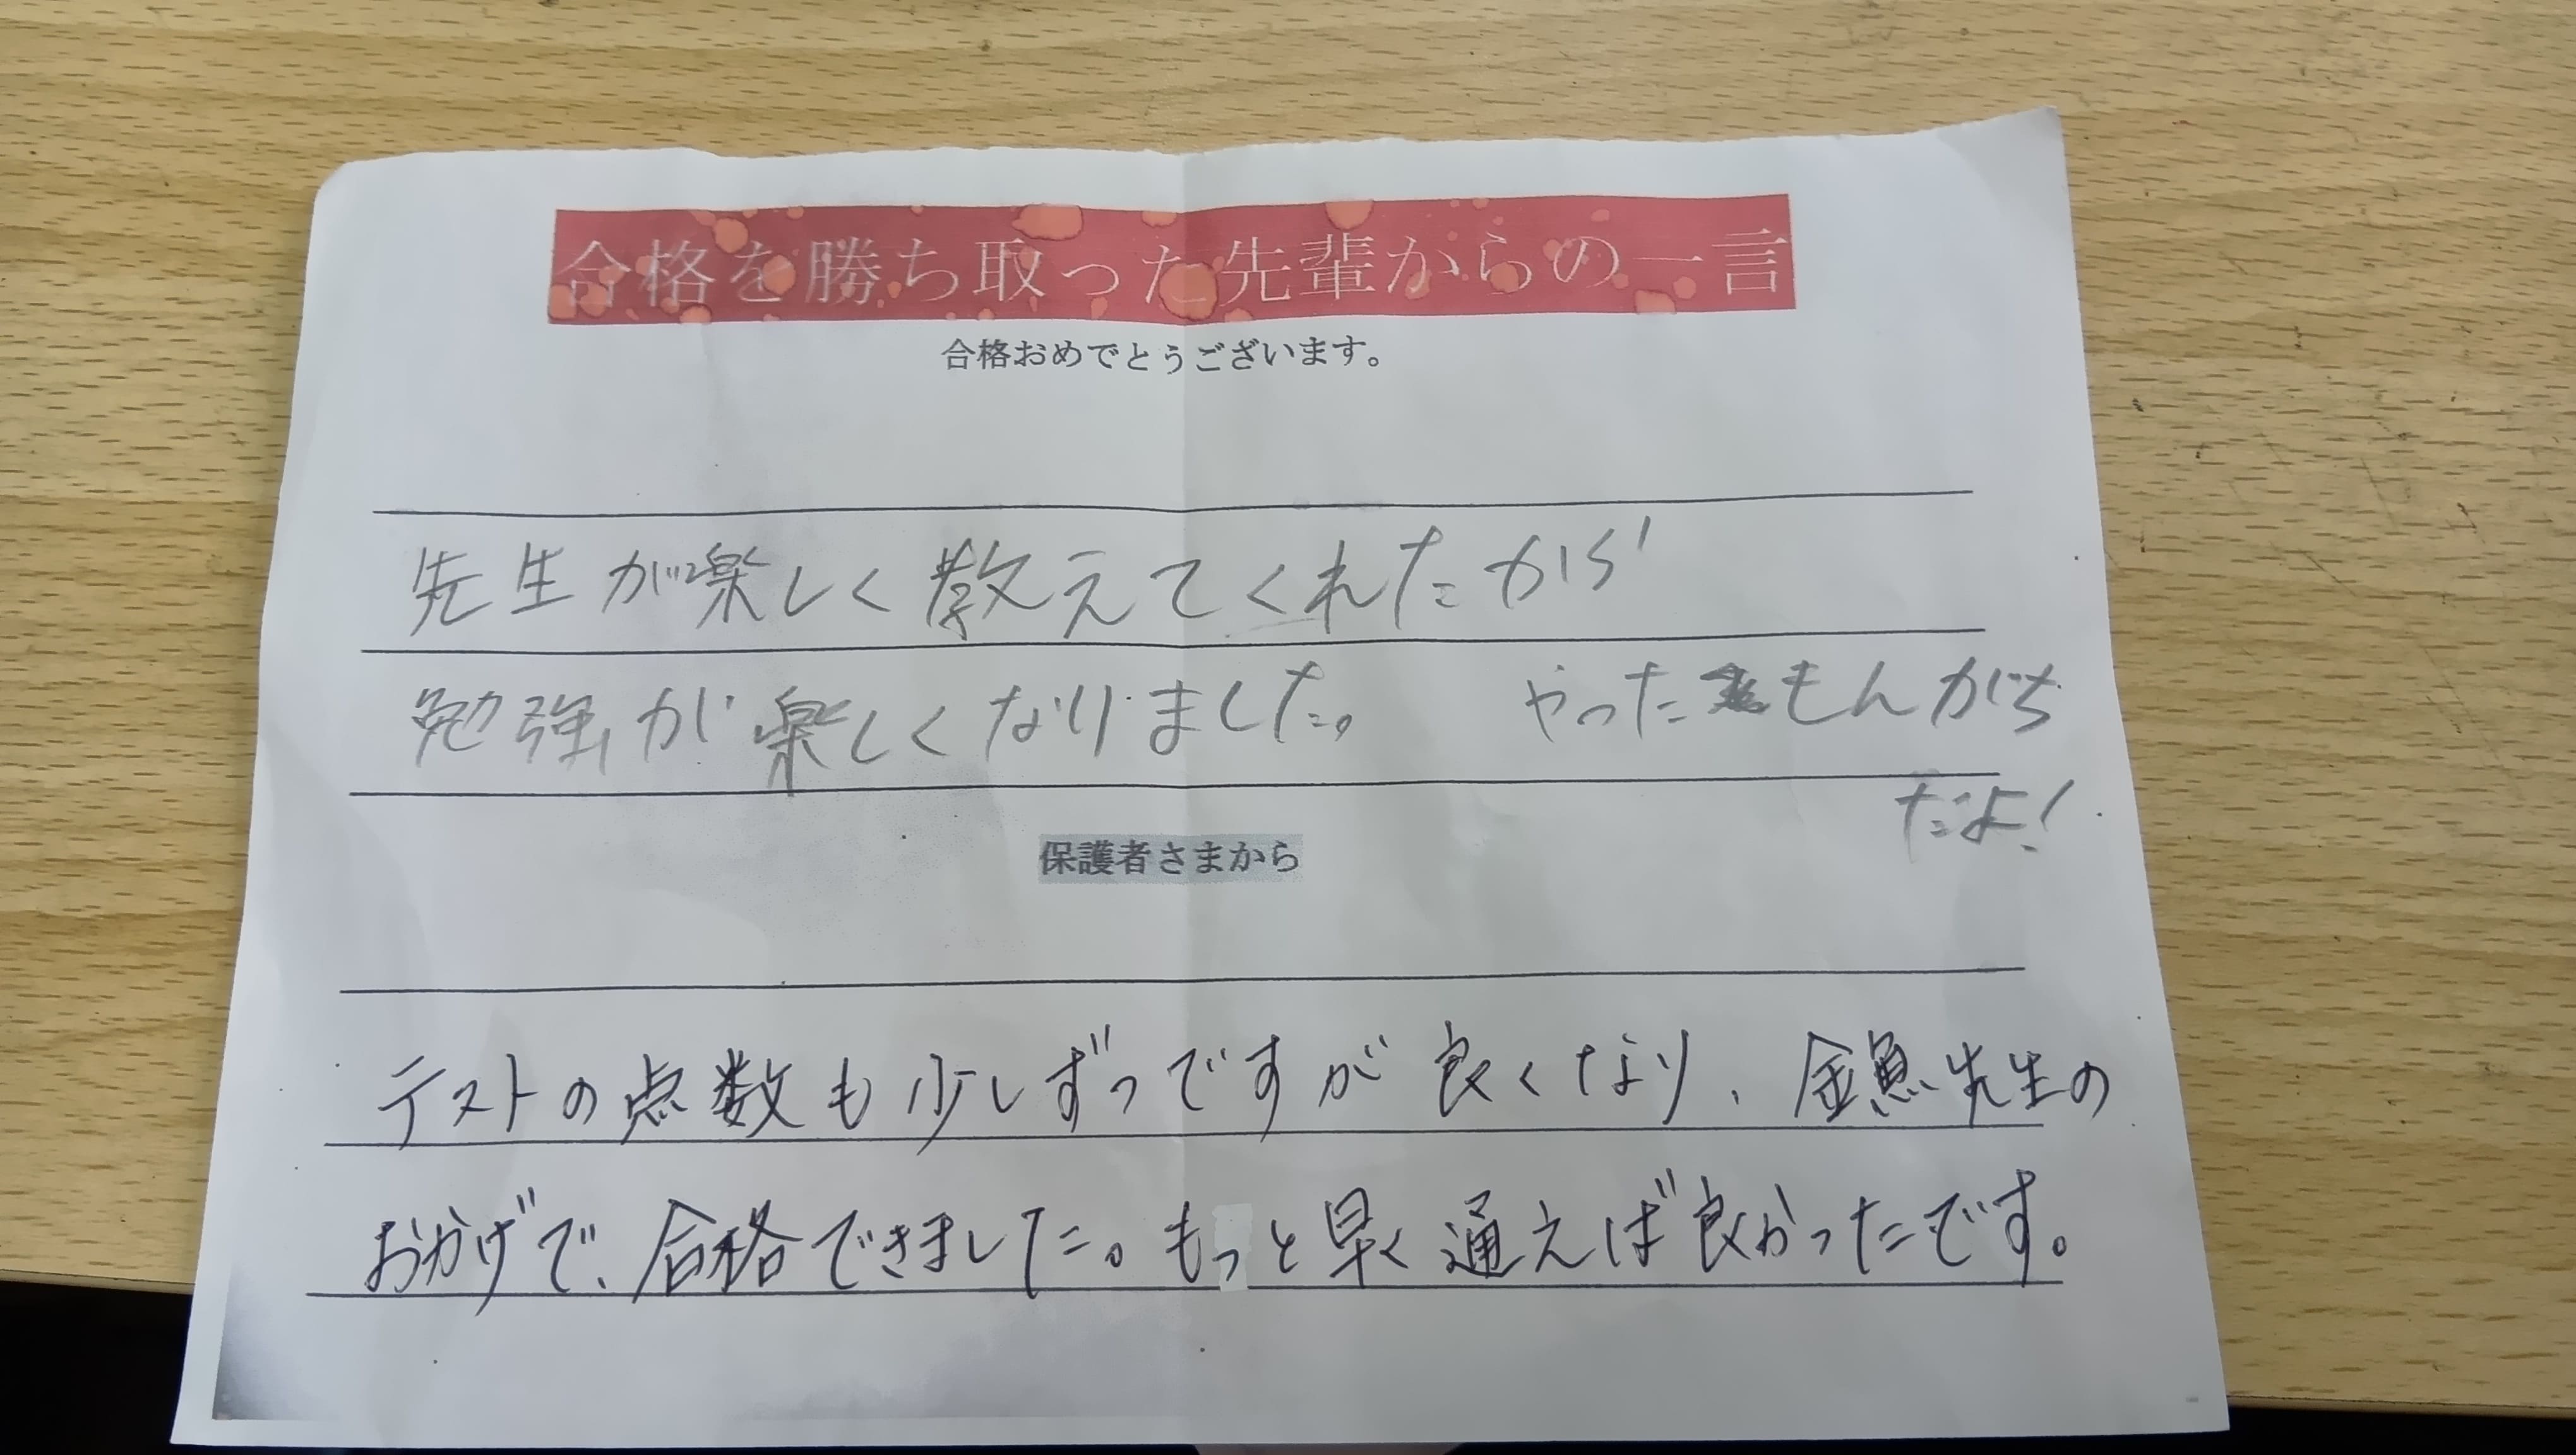 合格を勝ち取った先輩からの一言
合格おめでとうございます。
先生が楽しく教えてくれたから
勉強が楽しくなりました。 やったもんがち
だよ!
保護者さまから
テストの点数も少しずつですが良くなり、金魚先生の
おかげで、合格できました。もっと早く通えば良かったです。